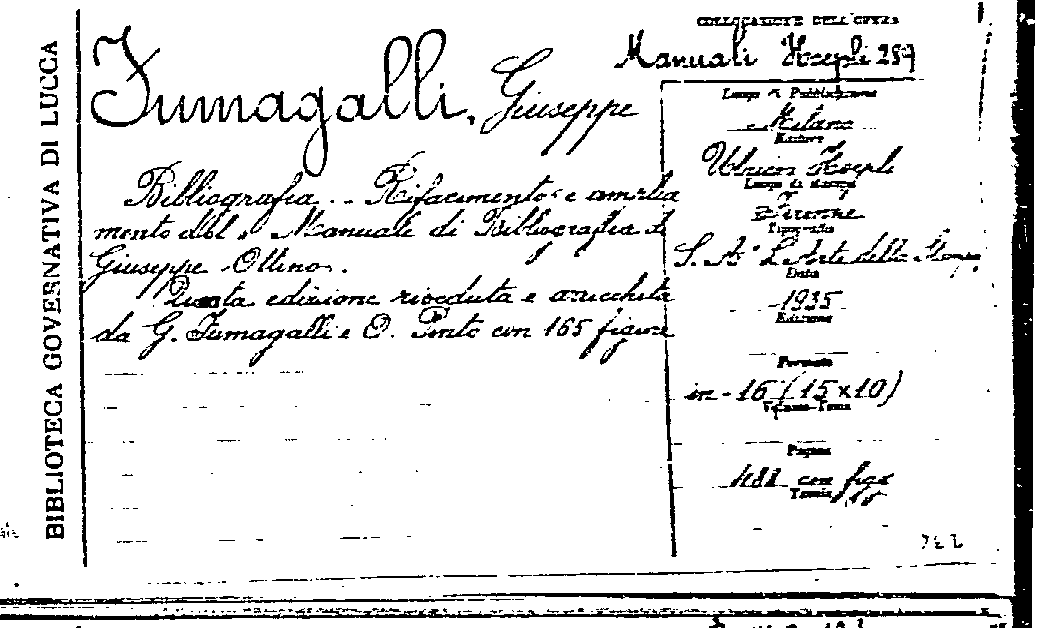 BIBLIOTECA GOVERNATIVA DI LUCCA
Fumagalli, Giuseppe
Bibliografia. - Rifacimento e amplia
mento del "Manuale di Bibliografia di
Giuseppe Ottino.
Quarta edizione riveduta e arricchita
da G. Fumagalli e O. Pinto con 165 figure
COLLOCAZIONE DELL'OPERA
Manuali Hoepli 287
Luogo di Pubblicazione
Milano
Editore
Ulrico Hoepli
Luogo di stampa
Firenze
Tipografia
S. A. L'Arte della Stampa
Data
1935
Edizione
Formato
in-16 (15x10)
Volume-Tomo
Pagine
con figg